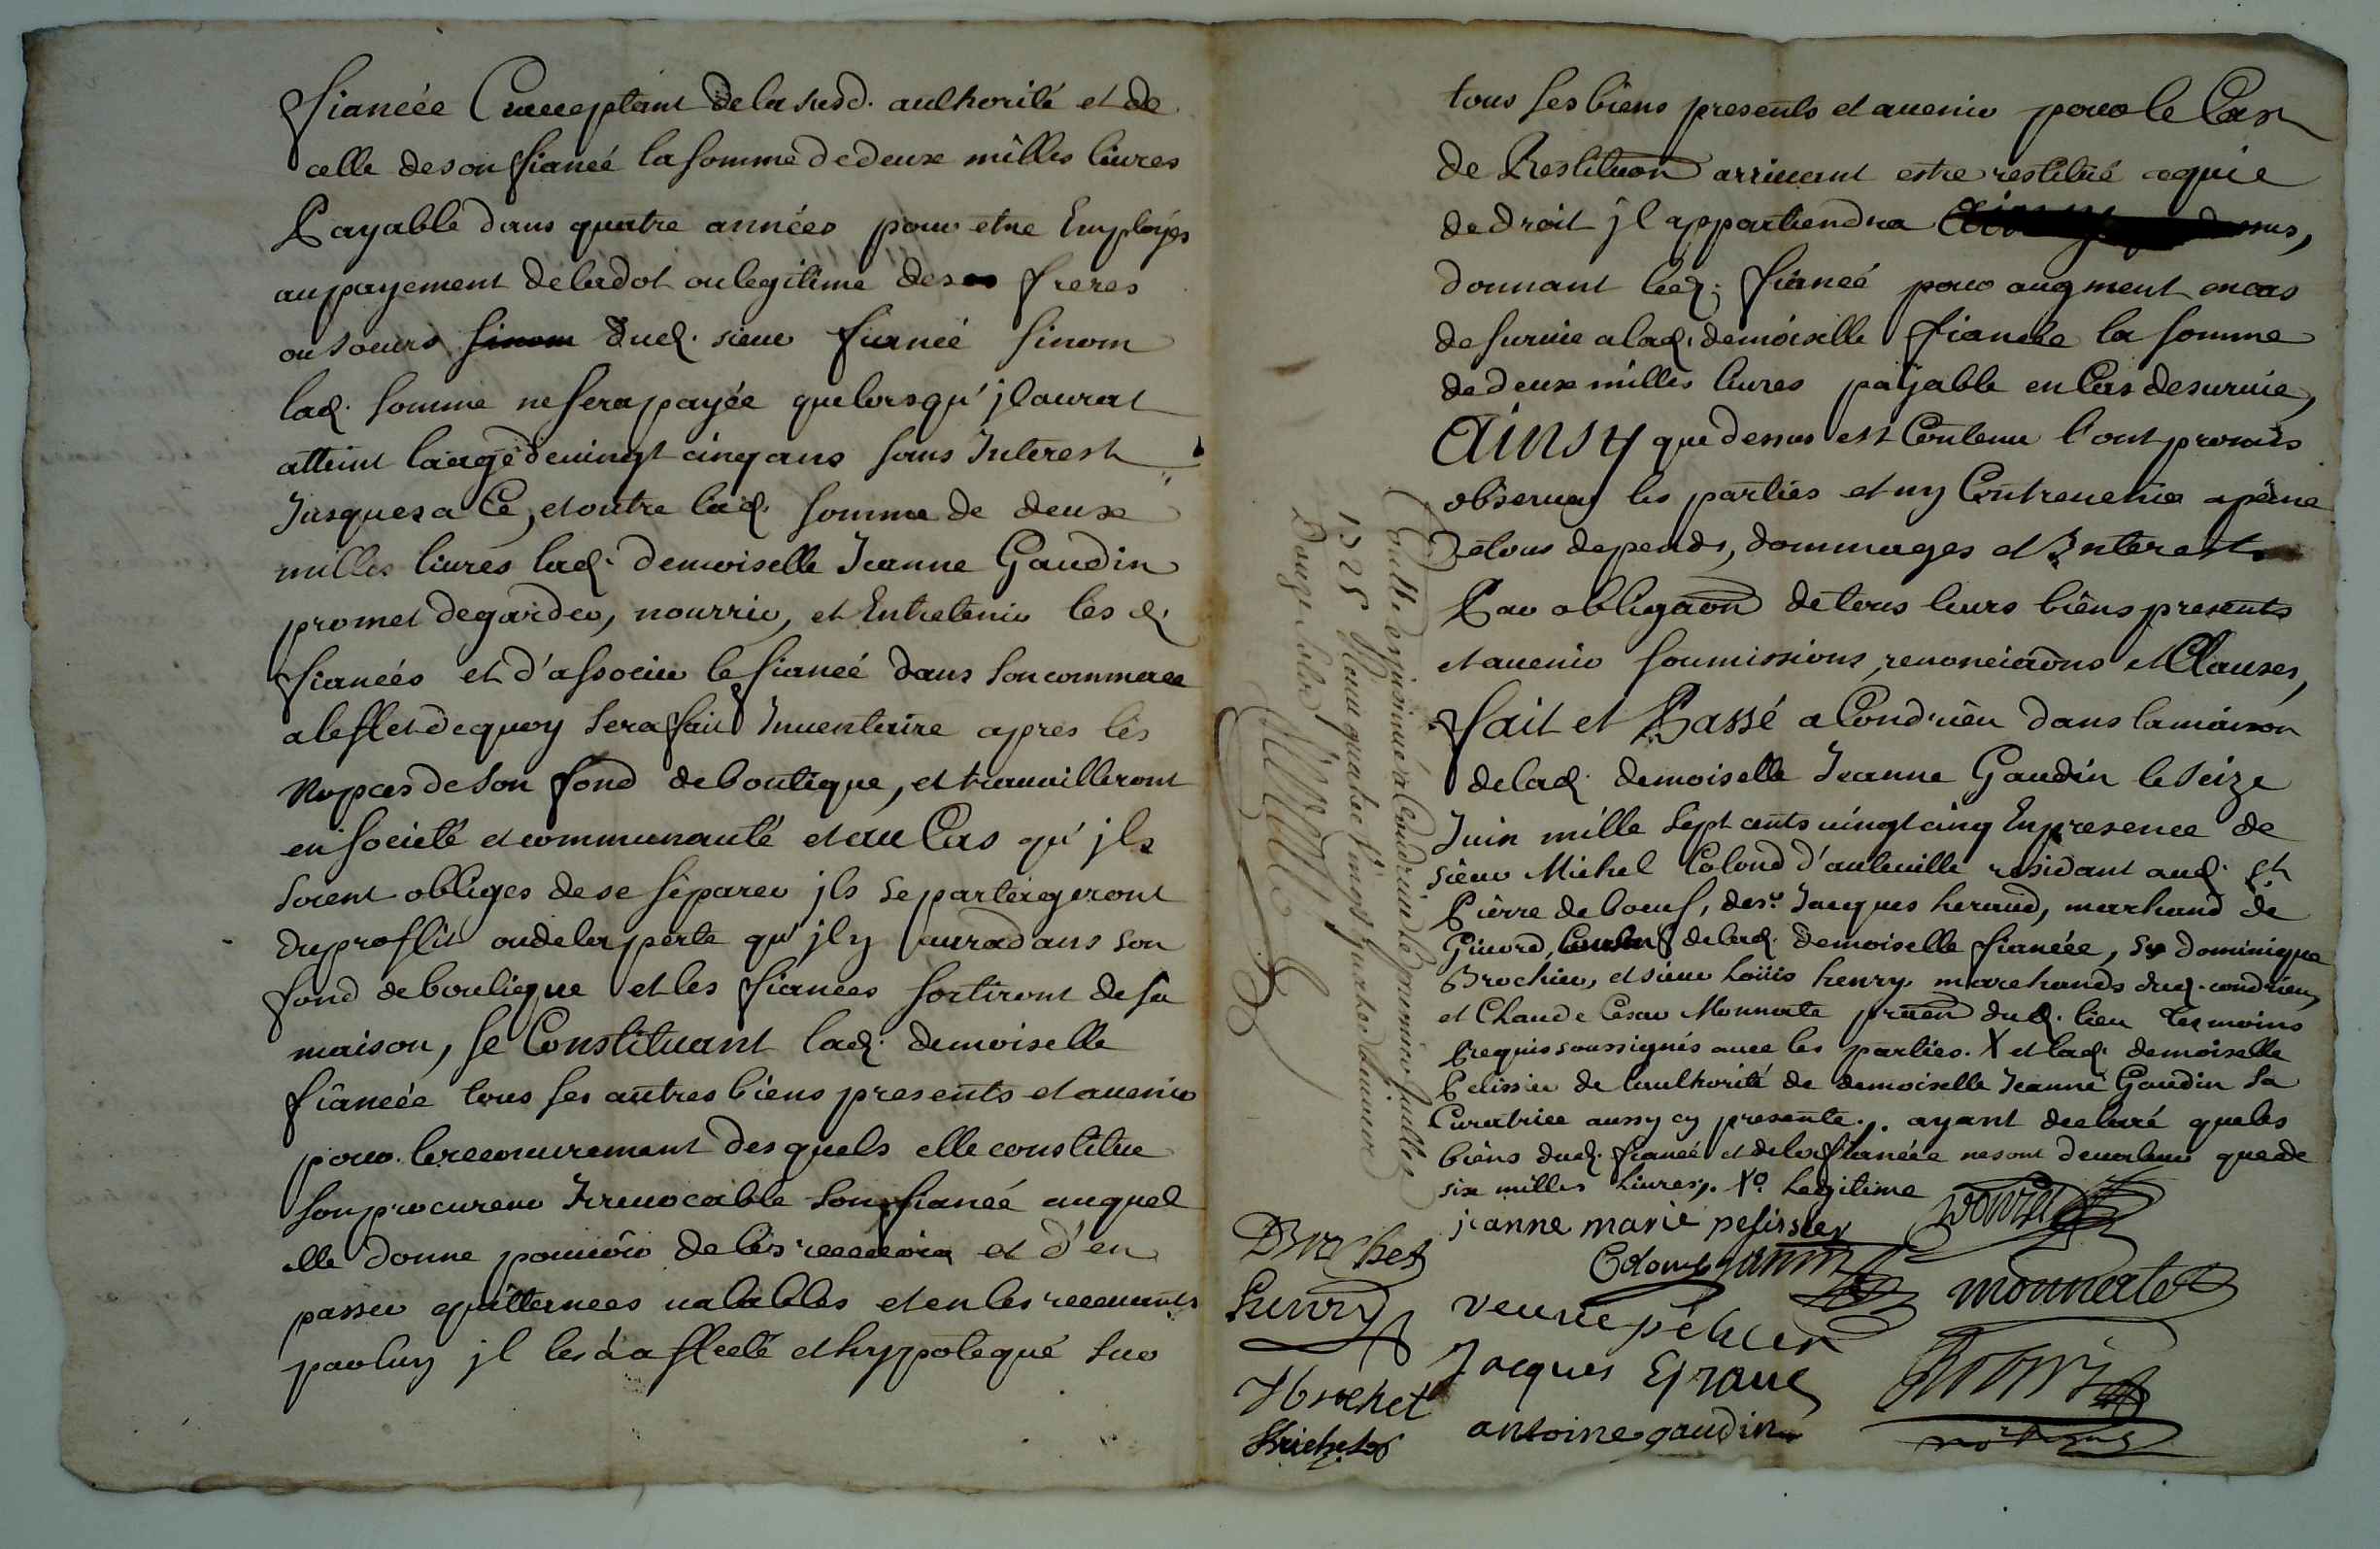 fiancée Cy acceptant de la susd. authorité et de
celle de son fiancé la somme de deux milles livres
Payable dans quatre années pour etre Employés
au payement de la dot ou legitime des freres
ou soeurs sinom dud. sieur fiancé sinom
lad. somme ne sera payée que lorsqu'jl aurat
atteint laage de vingt cinq ans sans Interest
Jusques a Ce, et outre lad. somme de deux
milles livres lad. demoiselle Jeanne Gaudin
promet de garder, nourrir, et Entretenir les d.
fiancés et d'associer le fiancé dans son commerce
a leffet de quoy sera fait Inventaire apres les
Nopces de son fond de boutique, et travailleront
en societé et communauté et au Cas qu'jls
soient obliges de se séparer jls se partageront
du proffit ou de la perte qu'jl y aura dans son
fond de boutique et les fiancés sortiront de sa
maison, se Constituant lad. demoiselle
fiancée tous ses autres biens presents et avenir
pour le recouvrement des quels elle constitue
son procureur Irrevocable son fiancé auquel
elle donne pouvoir de les recevoir et d'en
passer quittances valables et en les recevants
par luy jl les a affecté et hyppotequé sur
tous ses biens presents et avenir pour le Cas
de Restituon arrivant estre restitué a qui e
de droit jl appartiendra
donnant led. fiancé pour augment en cas
de survie a lad. demoiselle fiancée la somme
de deux milles livres payable en Cas de survie,
Ainsy que dessus est Contenu l'ont promis
observer les parties et ny Contrevenir a peine
de tous depends, dommages et Interests
Par obligaon de tous leurs biens presents
et avenir soumissions, renonciaons et Clauses,
fait et Passé a Condrieu dans la maison
de lad. demoiselle Jeanne Gaudin le seize
Juin mille sept cents vingt cinq En presence de
sieur Michel Colond d'auteville residant aud. St
Pierre de boeuf, de sr. Jacques heraud, marchand de
Givord, de lad. demoiselle fiancée, sr dominique
Brochier, et sieur Loüis henry marchands dud. condrieu,
et Claude Cesar Monnate praticn dud. lieu tesmoins
Requis soussignés avec les parties. X et lad. demoiselle
Pelissier de lauthorité de demoiselle Jeanne Gaudin sa
Curatrice aussy cy presente. ayant declaré que les
biens dud. fiancé et de la fiancée ne sont de valeur que de
six milles livres. Xo. Legitime
jeanne marie pelissier
Colomb
monnate
Henry
veuve pelicier
Jacques Eyraud
antoine gaudin
Controllé et jnsinué a Condrieu le premier Juillet
1725 Receu quatre vingt quatre livres